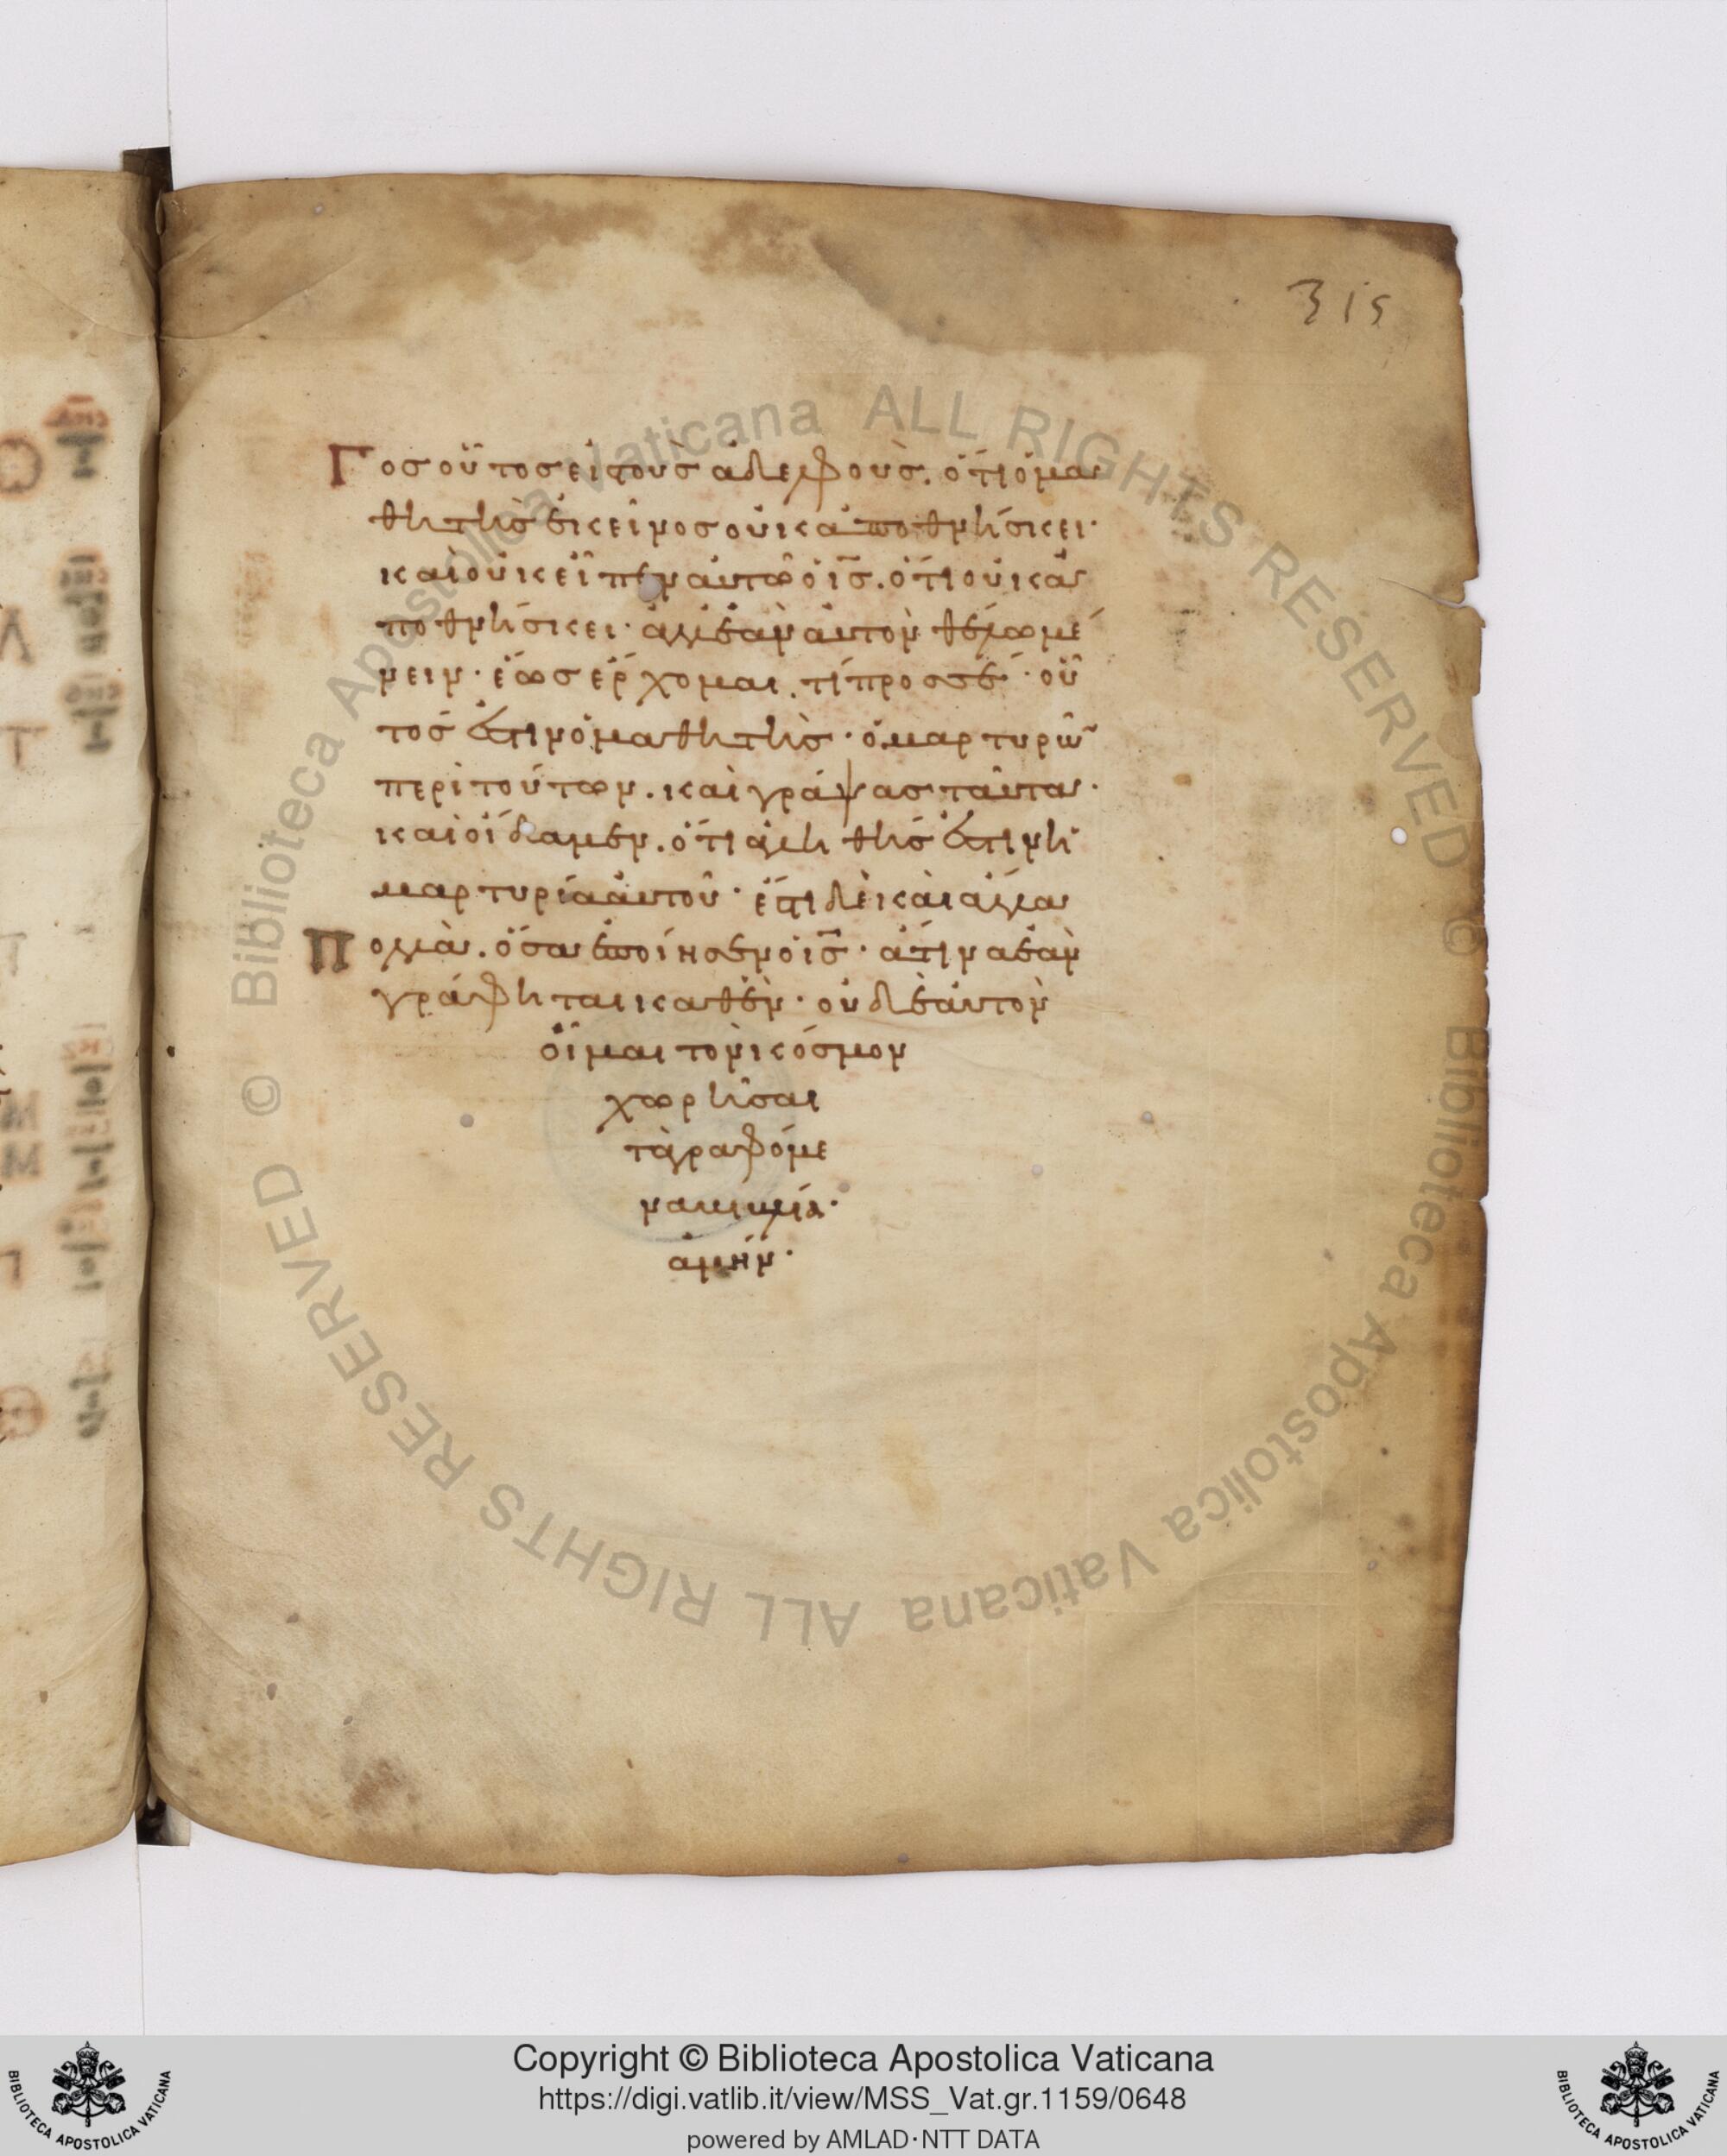 315
Γοσ οὗτοσ εἰσ τοὺσ ἀδελφοὺσ. ὅτι ὁ μα
θητὴσ ἐκεῖνοσ οὐκ ἀποθνήσκει·
καὶ οὐκ εἶπεν αὐτῶ ὁ ισ. ὅτι οὐκ ἀ
ποθνήσκει· ἀλλ' ἐὰν αὐτὸν θέλω μέ
νειν· ἕωσ ἔρχομαι. τί προσ σέ· οὗ
τόσ ἐστιν ὁ μαθητὴσ· ὁ μαρτυρῶ
περὶ τούτων. καὶ γράψασ ταῦτα·
καὶ οἴδαμεν. ὅτι ἀληθήσ ἐστιν ἡ
μαρτυρία αὐτοῦ· ἔστι δὲ καὶ ἄλλα
Πολλὰ. ὅσα ἐποίησεν ὁ ισ· ἅτινα ἐὰν
γράφηται καθ' ἓν· οὐδὲ αὐτὸν
οἶμαι τὸν κόσμον
χωρῆσαι
τὰ γραφόμε
να βιβλία·
ἀμήν·
Biblioteca Apostolica Vaticana ALL RIGHTS RESERVED ©
Biblioteca Apostolica Vaticana ALL RIGHTS RESERVED ©
Copyright © Biblioteca Apostolica Vaticana
https://digi.vatlib.it/view/MSS_Vat.gr.1159/0648
powered by AMLAD·NTT DATA
BIBLIOTECA APOSTOLICA VATICANA
BIBLIOTECA APOSTOLICA VATICANA